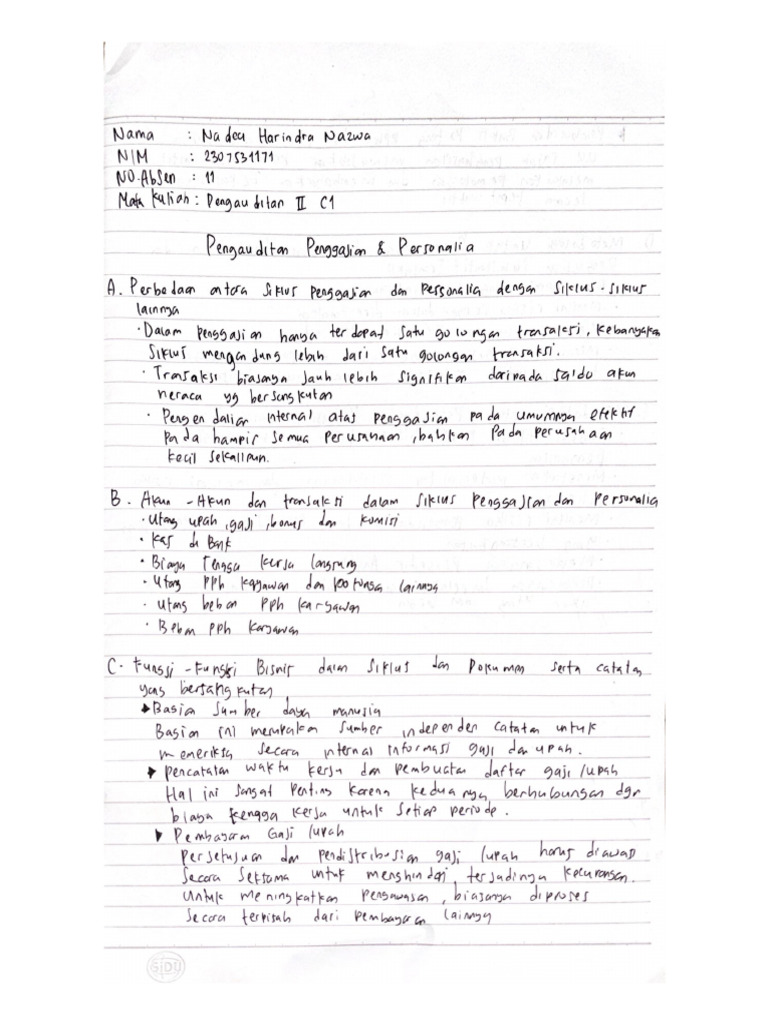 Nama : Nadea Harindra Nazwa
NIM : 2307531171
NO.Absen : 11
Mata Kuliah : Pengauditan II C1
Pengauditan Penggajian & Personalia
A. Perbedaan antara siklus penggajian dan personalia dengan siklus-siklus
lainnya
· Dalam penggajian hanya terdapat satu golongan transaksi, kebanyakan
siklus mengandung lebih dari satu golongan transaksi.
· Transaksi biasanya jauh lebih signifikan daripada saldo akun
neraca yg bersangkutan
· Pengendalian internal atas penggajian pada umumnya efektif
pada hampir semua perusahaan, bahkan pada perusahaan
kecil sekalipun.
B. Akun-Akun dan transaksi dalam siklus penggajian dan personalia
· Utang upah, gaji, bonus dan komisi
· Kas di Bank
· Biaya Tenaga kerja langsung
· Utang PPh karyawan dan potongan lainnya
· Utang beban PPh karyawan
· Beban PPh karyawan
C. Fungsi-Fungsi Bisnis dalam siklus dan Dokumen serta catatan
yang bersangkutan
Bagian sumber daya manusia
Bagian ini merupakan sumber independen catatan untuk
memeriksa secara internal informasi gaji dan upah.
Pencatatan waktu kerja dan pembuatan daftar gaji/upah
Hal ini sangat penting karena keduanya berhubungan dgn
biaya tenaga kerja untuk setiap periode.
Pembayaran Gaji/upah
Persetujuan dan pendistribusian gaji/upah harus diawasi
secara seksama untuk menghindari terjadinya kecurangan.
Untuk meningkatkan pengawasan, biasanya diproses
secara terpisah dari pembayaran lainnya
SIDU